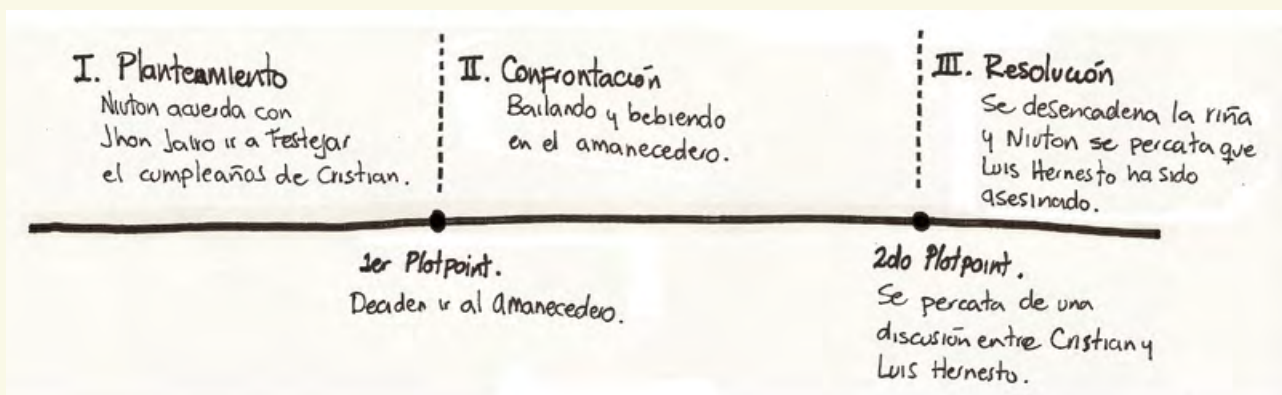 I. Planteamiento
Niuton acuerda con
Jhon Jairo ir a festejar
el cumpleaños de Cristian.
II. Confrontación
Bailando y bebiendo
en el amanecedero.
III. Resolución
Se desencadena la riña
y Niuton se percata que
Luis Hernesto ha sido
asesinado.
1er Plotpoint.
Deciden ir al amanecedero.
2do Plotpoint.
Se percata de una
discusión entre Cristian y
Luis Hernesto.